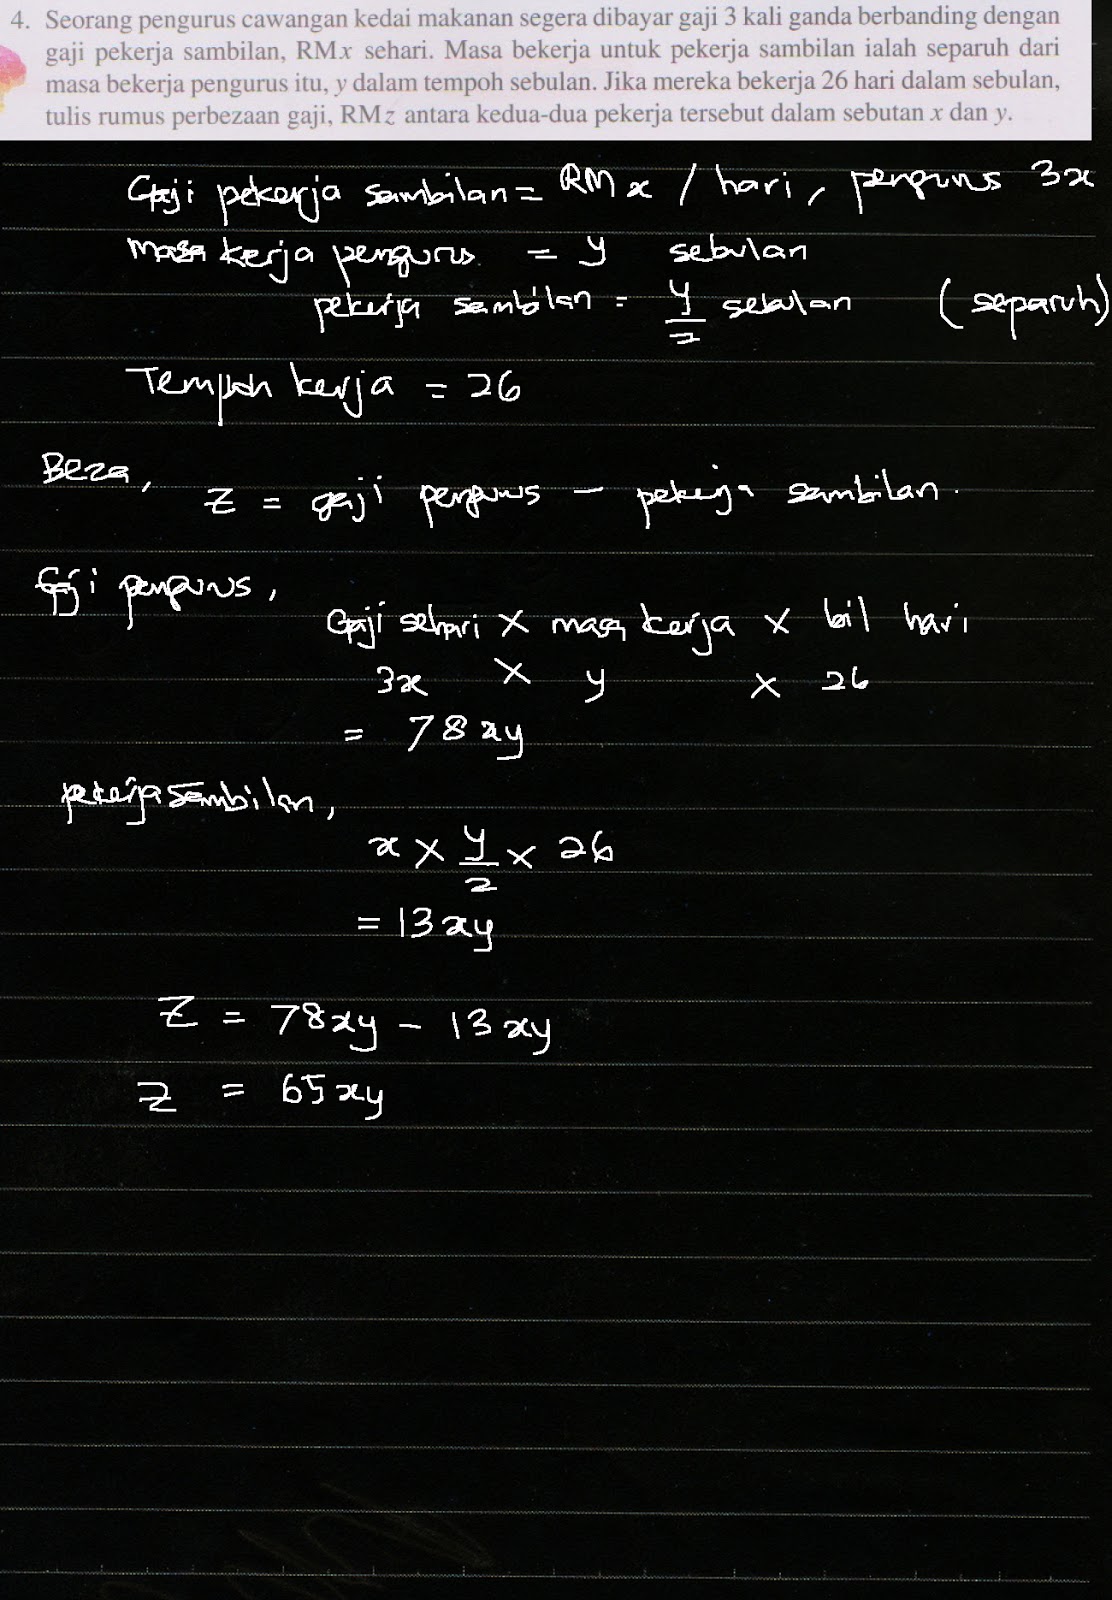 4. Seorang pengurus cawangan kedai makanan segera dibayar gaji 3 kali ganda berbanding dengan
gaji pekerja sambilan, RMx sehari. Masa bekerja untuk pekerja sambilan ialah separuh dari
masa bekerja pengurus itu, y dalam tempoh sebulan. Jika mereka bekerja 26 hari dalam sebulan,
tulis rumus perbezaan gaji, RMz antara kedua-dua pekerja tersebut dalam sebutan x dan y.
Gaji pekerja sambilan = RM x / hari, pengurus 3x
masa kerja pengurus = y sebulan
pekerja sambilan = y/2 sebulan (separuh)
Tempoh kerja = 26
Beza,
z = gaji pengurus - pekerja sambilan.
Gaji pengurus,
Gaji sehari × masa kerja × bil hari
3x × y × 26
= 78xy
pekerja sambilan,
x × y/2 × 26
= 13xy
z = 78xy - 13xy
z = 65xy